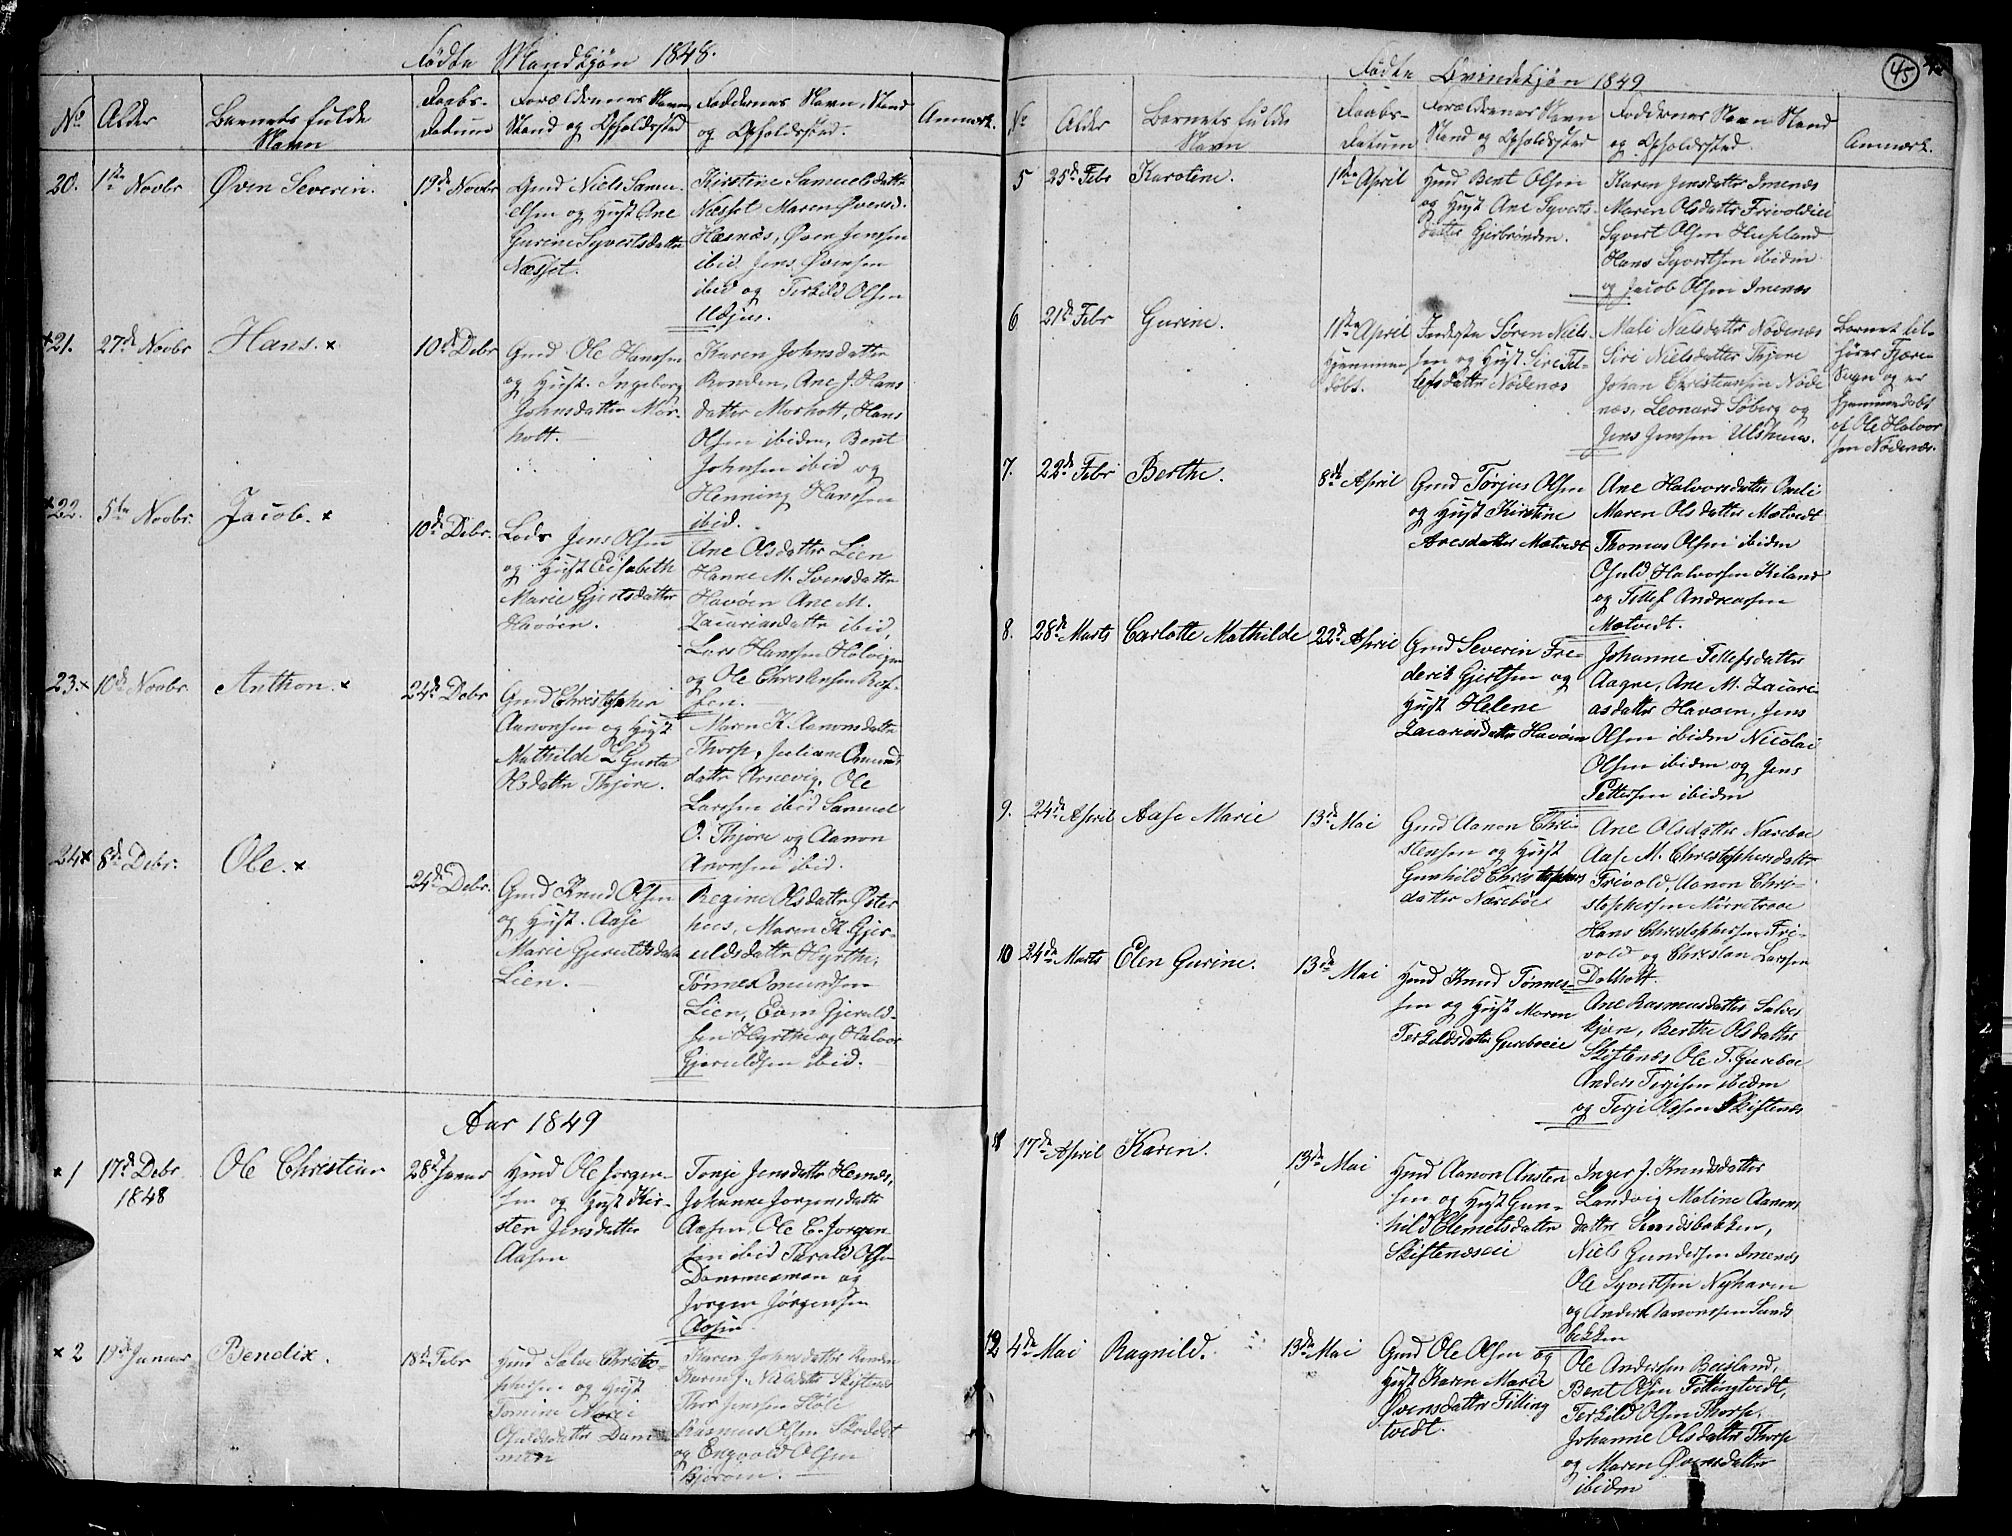 Fødte Mandkjøn 1848.
No Alder Barnets fulde Navn Daabs-Datum Forældrenes Navn Stand og Opholdssted Faddernes Navn, Stand og Opholdssted. Anmærk.
20. 1ste Novbr Øven Severin. 19de Novbr
Gmd Niels Samu-
elsen og Hust Ane
Gurine Syvertsdatter
Næsset.
Kirstine Samuelsdatter
Næsset Maren Øvensd.
Hæsnæs, Øven Jensen
ibid Jens Øvensen
ibid og Terkild Olsen
21. 27de Novbr Hans. 10de Debr
Gmd Ole Hansen
og Hust. Ingeborg
Johnsdatter Mor-
holt.
Karen Johnsdatter
Ronden, Ane J. Hans
datter Morholt, Hans
Olsen ibiden, Bent
Johnsen ibid og
Henning Hansen
ibid.
22. 5te Novbr. Jacob. 10de Debr.
Lods Jens Olsen
og Hust Elisabeth
Marie Gjertsdatter
Havøen.
Ane Olsdatter Lien
Hanne M. Svensdatter
Havøen Ane M.
Zacariasdatter ibid,
Lars Hansen
og Ole Christensen
23. 10de Novbr. Anthon. 24de Debr
Gmd Christopher
Aanonsen og Hust
Mathilde
Olsdatter Thjøre.
Maren K. Aanonsdatter
Thorp, Juliane Omund
datter Arnevig, Ole
Larsen ibid Samuel
O. Thjøre og Aanon
Aanonsen ibid.
24 8de Debr. Ole. 24de Debr.
Gmd Knud Olsen
og Hust. Aase
Marie Gjeruldsdatter
Lien.
Regine Olsdatter Øster
hus, Maren K. Gjer-
uldsdatter Hyrthe,
Tønnes Omundsen
Lien, Even Gjeruld-
sen Hyrthe og Halvor
Gjeruldsen ibid.
Aar 1849
1 17de Debr. 1848 Ole Christian 28de Januar
Hmd Ole Jørgen-
sen og Hust Kir-
sten Jensdatter
Aasen
Tonje Jensdatter Hesnæs,
Johanne Jørgensdatter
Aasen, Ole C. Jørgen
sen ibid Tarald Olsen
Dammesmon og
Jørgen Jørgensen
Aasen
2 19de Januar Bendix. 18de Febr
Hmd Salve Christo-
phersen og Hust
Tomine Marie
Dam
men
Karen Johnsdatter
Karen J. Nielsdatter Skiftenæs
Thor Jensen
Rasmus Olsen
og Engvald Olsen
45
Fødte Qvindekjøn 1849
No Alder Barnets fulde Navn Daabs-Datum Forældrenes Navn Stand og Opholdssted Faddernes Navn Stand og Opholdssted. Anmærk.
5 25de Febr Karoline. 1ste April
Hmd Bent Olsen
og Hust Ane Syverts-
datter Gjerbrønden.
Karen Jensdatter Imenæs
Maren Olsdatter Frivoldeie
Syvert Olsen Huseland
Hans Syvertsen ibiden
og Jacob Olsen Imenæs
6 21de Febr Gurine. 1ste April Hjemme døbt.
Inderste Søren Niel-
sen og Hust. Siri Tel-
lefsdatter Nødenæs
Mali Nielsdatter Nødenæs
Siri Nielsdatter Thjøre
Johan Christiansen Nøde
næs, Leonard Søberg og
Jens Jensen
Barnet til-
hører Fjære
Sogn og er
hjemmedøbt
af Ole Halvor
sen Nødenæs.
7. 22de Febr Berthe. 8de April
Gmd Tørjus Olsen
og Hust Kirstine
Aresdatter Mætvedt
Ane Halvorsdatter Omli
Maren Olsdatter Mætvedt
Thomas Olsen ibiden
Osuld Halvorsen Kiland
og Tellef Andreassen
Mætvedt.
8. 28de Marts Carlotte Mathilde 22de April
Gmd Severin Fre-
derik Gjertsen og
Hust Helene
Zacariasdatter Havøen
Johanne Tellefsdatter
Aagre, Ane M. Zacari-
asdatter Havøen, Jens
Olsen ibiden Nicolai
Olsen ibiden og Jens
Pettersen ibiden
9. 24de April Aase Marie 13de Mai
Gmd Aanon Chri-
stensen og Hust
Gunhild Christophers
datter Næreboe
Ane Olsdatter Næreboe
Aase M. Christophersdatter
Frivold, Aanon Chri-
stophersen
Hans Christophersen Fri-
vold og Christen Larsen
Dalholt.
10 24de Marts Elen Gurine. 13de Mai
Hmd Knud Tønnes-
sen og Hust Maren
Terkildsdatter Gureboeie
Ane Rasmusdatter Salves
kjern, Berthe Olsdatter
Skiftenæs Ole T. Gureboe
Anders Terjesen ibiden
og Terje Olsen Skiftenæs
11 17de April Karen. 13de Mai
Hmd Aanon Ansten
sen og Hust Gun-
hild Clemetsdatter
Skiftenæseie
Inger J. Knudsdatter
Landvig Maline Aanons
datter Sundsbakken,
Niels Gundersen Imenæs
Ole Syvertsen Nyhaven
og Anders Aanonsen Sunds
bakken
12 4de Mai Ragnild. 13de Mai
Gmd Ole Olsen og
Hust Karen Marie
Øvensdatter Tilling
tvedt.
Ole Andersen Beisland,
Bent Olsen Tellingtvedt,
Terkild Olsen Thorp,
Johanne Olsdatter Thorp
og Maren Øvensdatter
ibiden